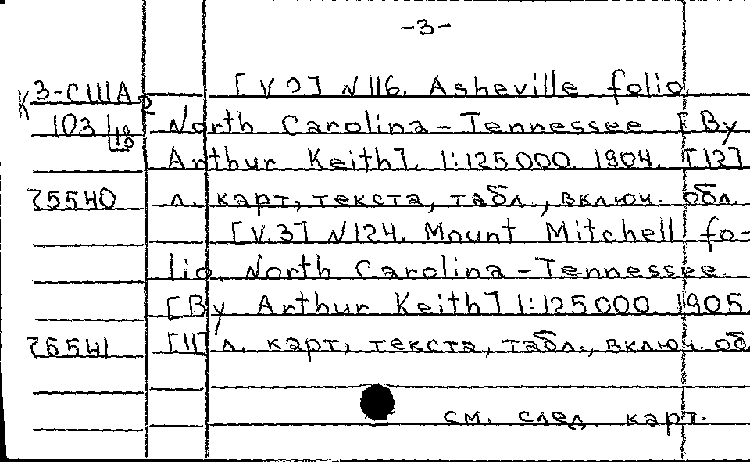 -3-
К 3-США [V.2] N 116. Asheville folio
103/18 North Carolina-Tennessee [By
Arthur Keith]. 1:125000. 1904. [12]
75540 л. карт, текста, табл., включ. обл.
[V.3] N124. Mount Mitchell fo-
lio. North Carolina-Tennessee.
[By Arthur Keith] 1:125000 1905.
75541 [11] л. карт, текста, табл., включ. об
см. след. карт.